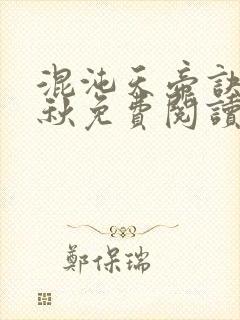 混沌天帝訣
秋免費閱讀
鄭保瑞